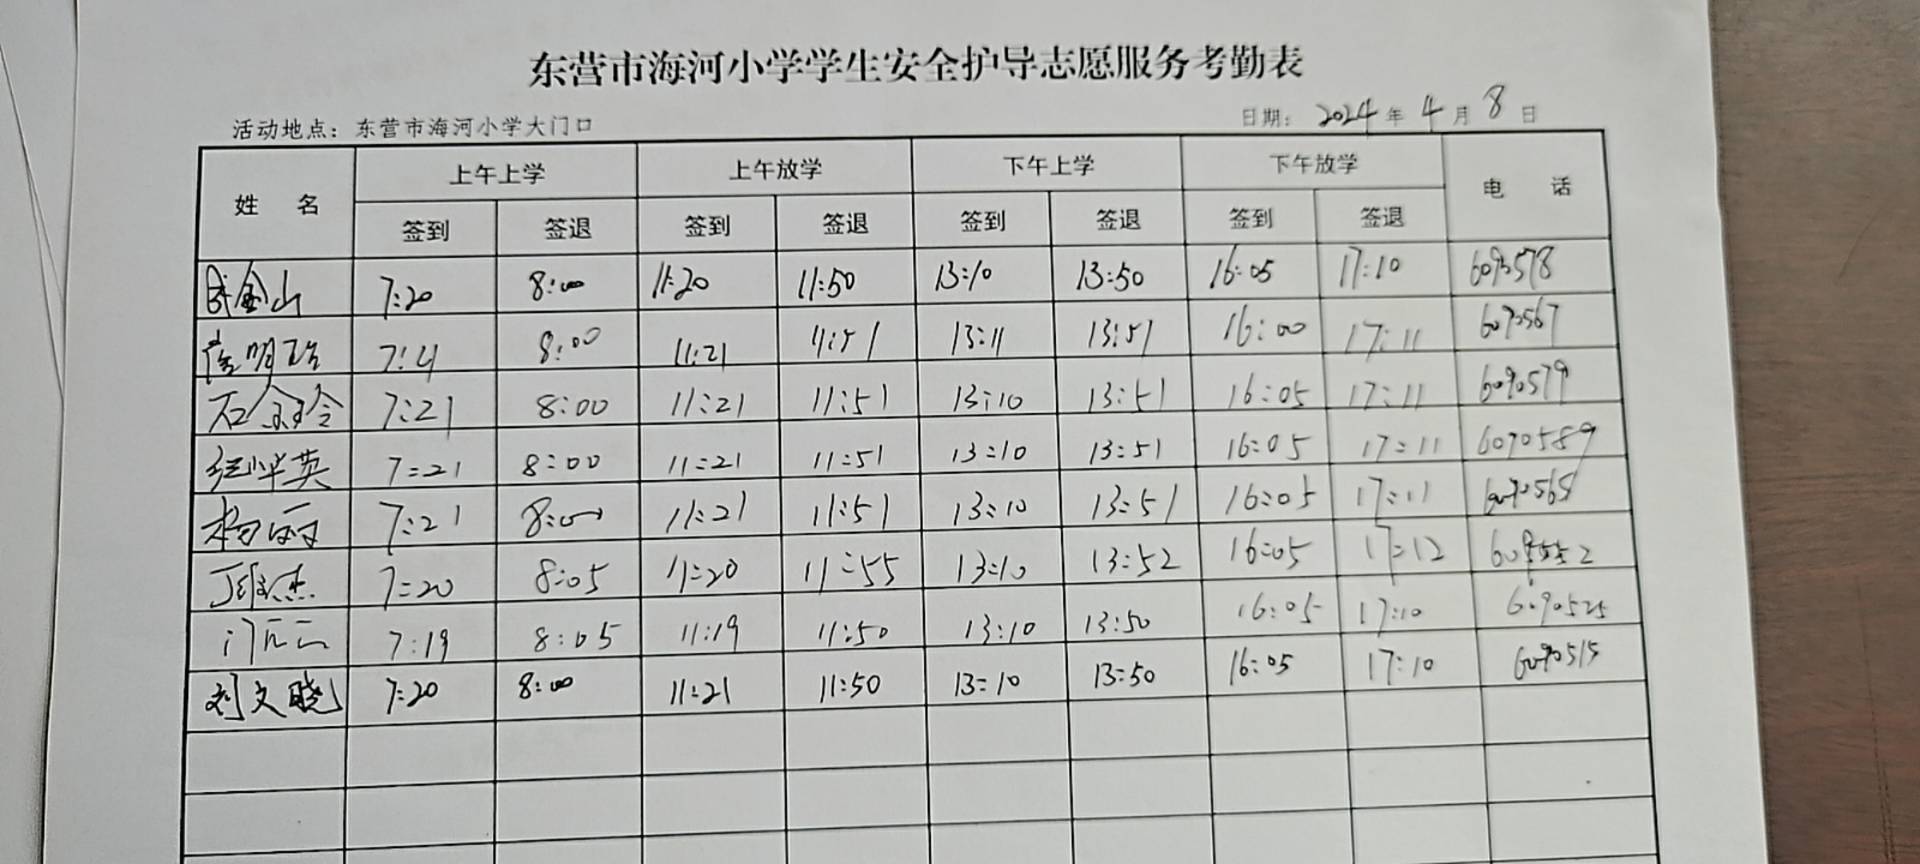 东营市海河小学学生安全护导志愿服务考勤表
活动地点：东营市海河小学大门口 日期：2024年4月8日
姓 名 上午上学 上午放学 下午上学 下午放学 电 话
签到 签退 签到 签退 签到 签退 签到 签退
金山 7:20 8:00 11:20 11:50 13:10 13:50 16:05 17:10
明 8:00 11:21 11:51 13:11 13:51 16:00 17:11
石 7:21 8:00 11:21 11:51 13:10 13:51 16:05 17:11 6090579
英 7:21 8:00 11:21 11:51 13:10 13:51 16:05 17:11 6090589
杨丽 7:21 8:00 11:21 11:51 13:10 13:51 16:05 17:11 6090565
杰 7:20 8:05 11:20 11:55 13:10 13:52 16:05 17:12
7:19 8:05 11:19 11:50 13:10 13:50 16:05 17:10 6090525
刘文晓 7:20 8:00 11:21 11:50 13:10 13:50 16:05 17:10 6090515